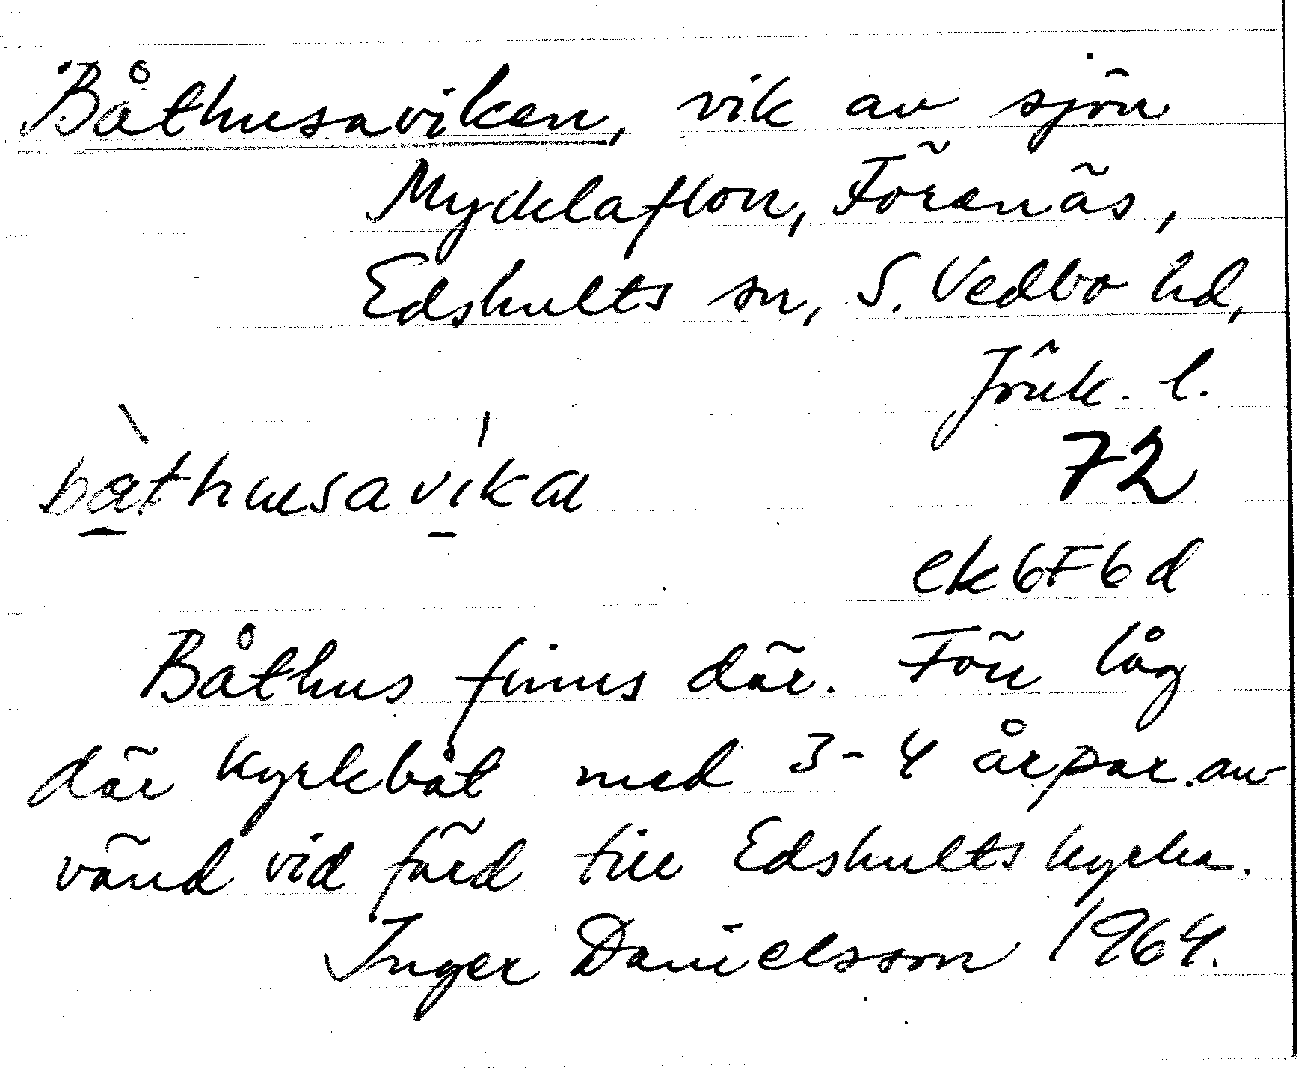 Båthusaviken, vik av sjön
Mycklaflon, Förenäs,
Edshults sn, S. Vedbo hd,
Jönk. l.
72
ek 6F6d
Båthus finns där. Förr låg
där kyrkbåt med 3-4 årpar an-
vänd vid färd till Edshults kyrka.
Inger Danielsson 1964.